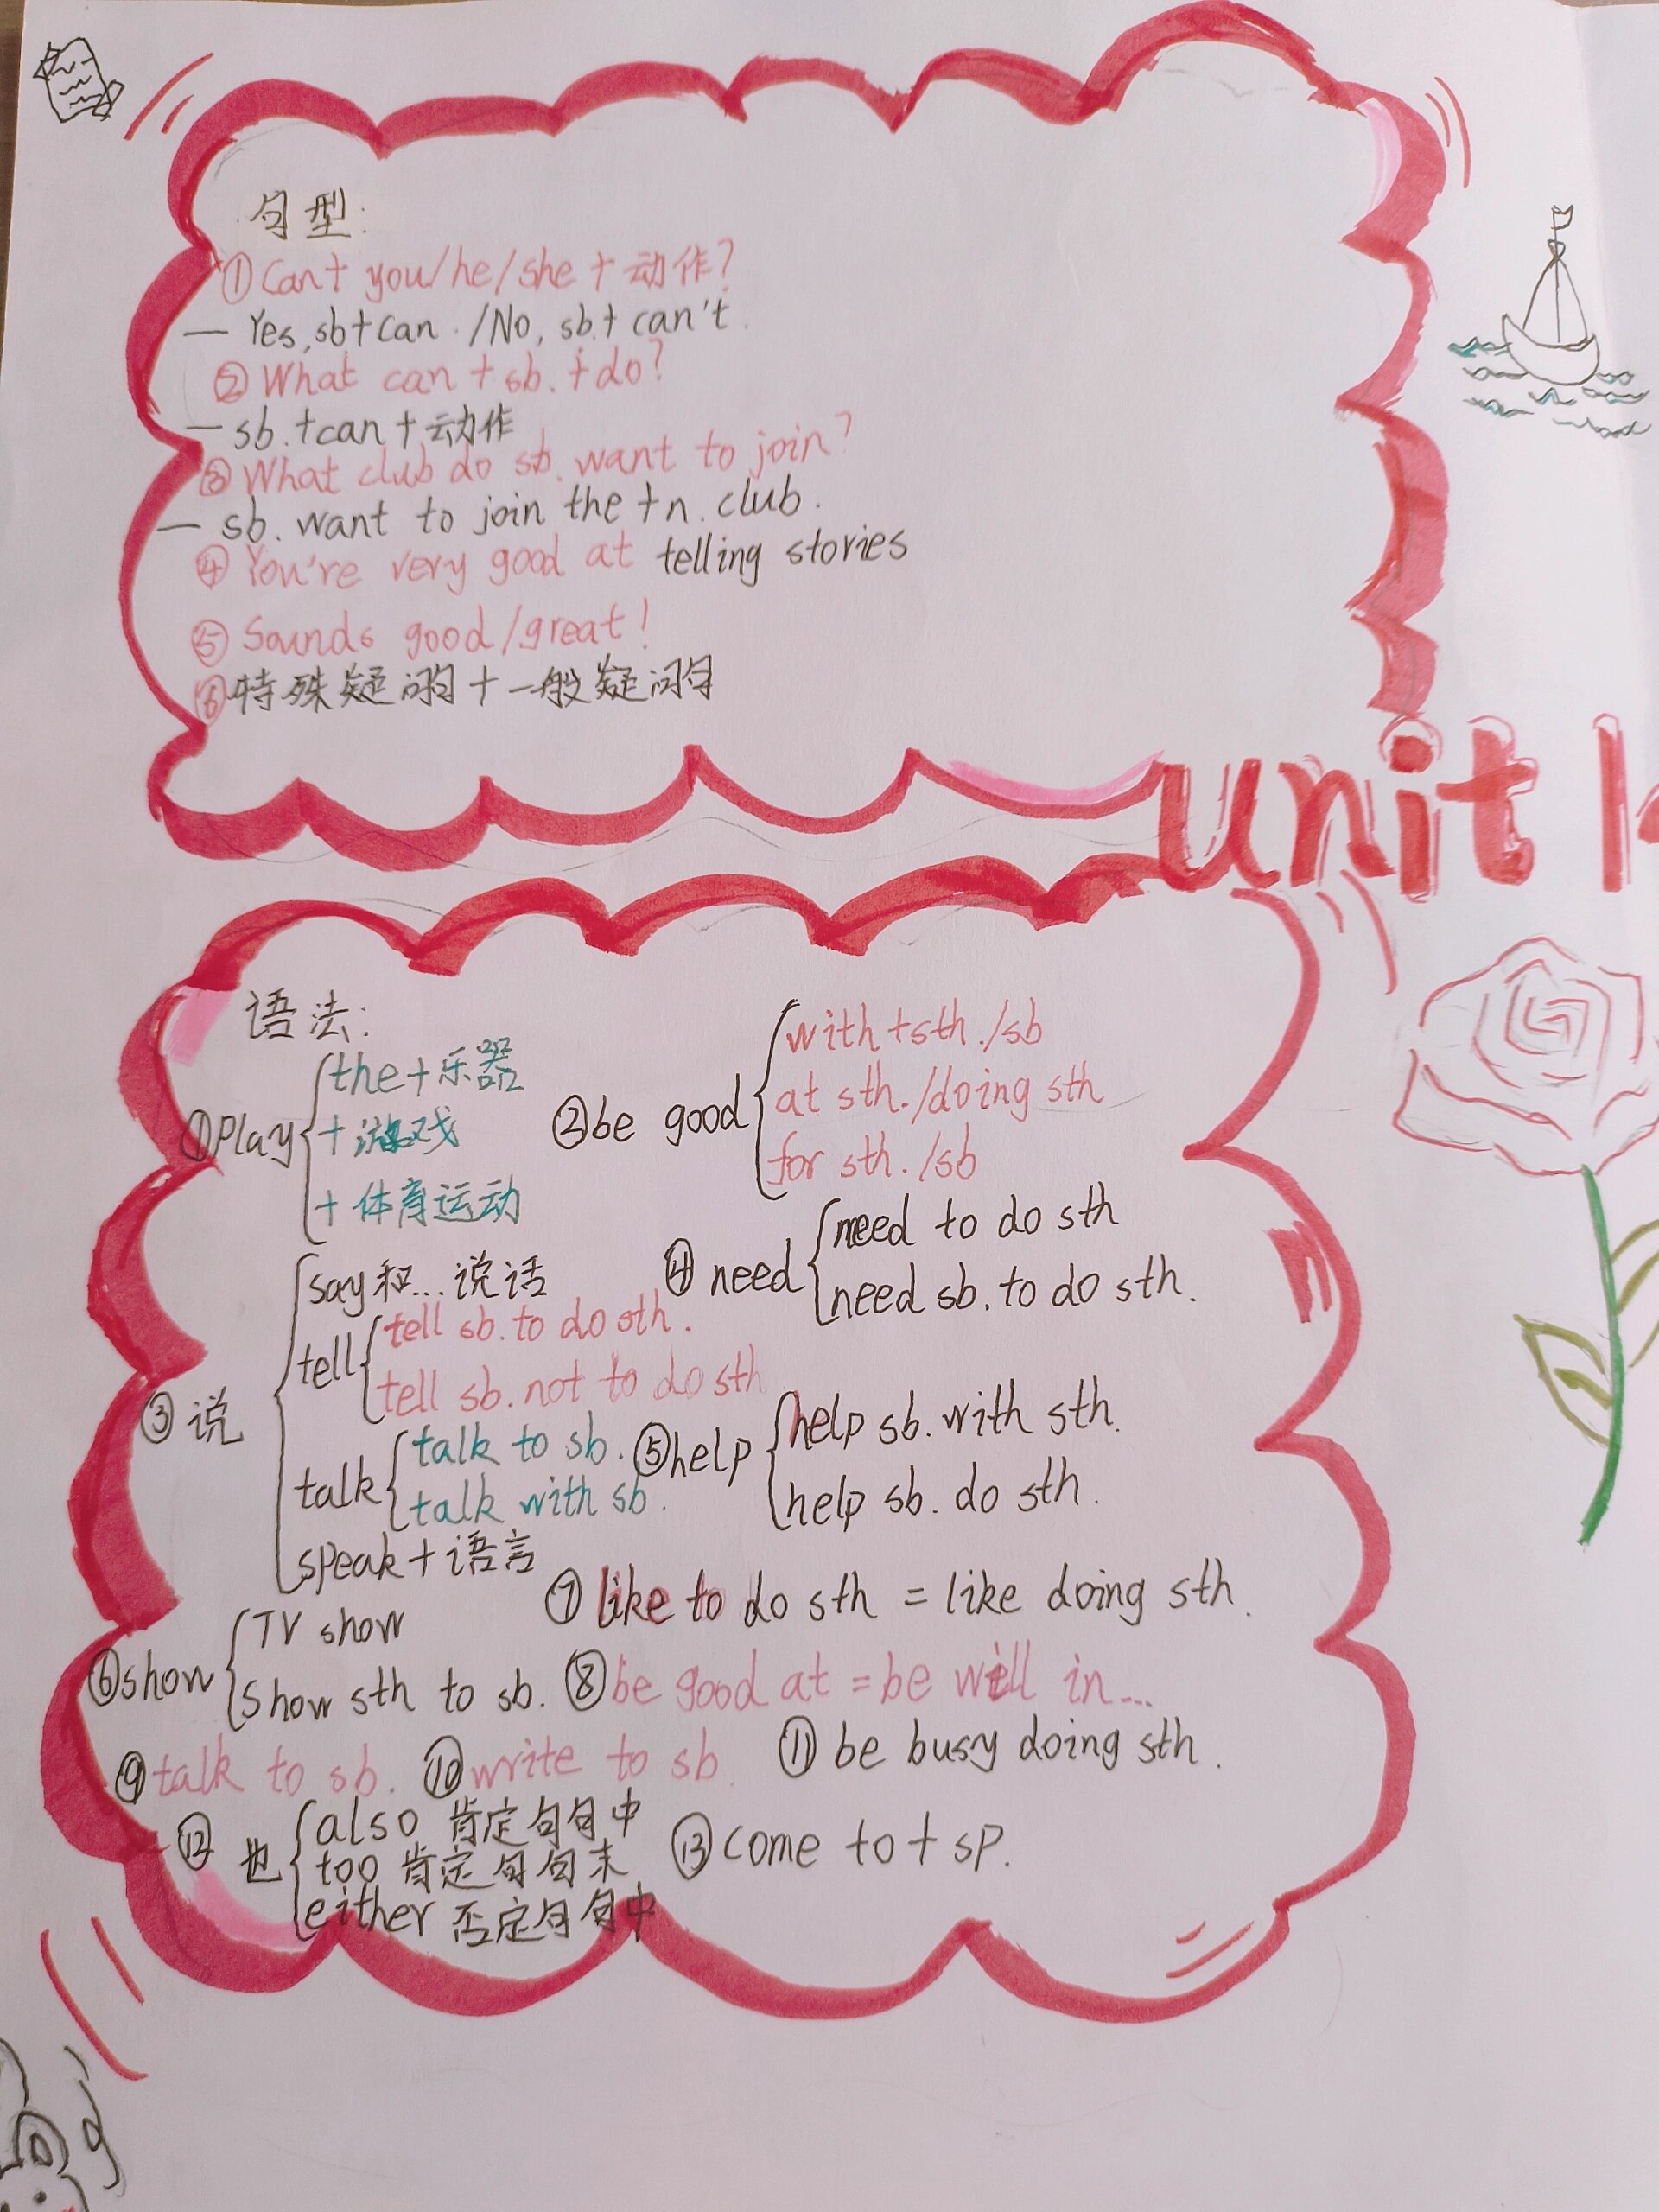 句型:
①Can+ you/he/she + 动作?
— Yes, sb+can. /No, sb.+ can't.
②What can + sb. + do?
— sb.+can+动作
③What club do sb. want to join?
— sb. want to join the + n. club.
④You're very good at telling stories
⑤Sounds good/great!
⑥特殊疑问句+一般疑问句
unit 1
语法:
①Play
the+乐器
+游戏
+体育运动
②be good
with+sth./sb
at sth./doing sth
for sth./sb
③说
say和...说话
tell
tell sb. to do sth.
tell sb. not to do sth
talk
talk to sb.
talk with sb.
speak+语言
④need
need to do sth
need sb. to do sth.
⑤help
help sb. with sth.
help sb. do sth.
⑥show
TV show
Show sth to sb.
⑦like to do sth = like doing sth.
⑧be good at = be well in...
⑨talk to sb.
⑩write to sb.
⑪be busy doing sth.
⑫也
also 肯定句句中
too 肯定句句末
either 否定句句中
⑬come to + sp.